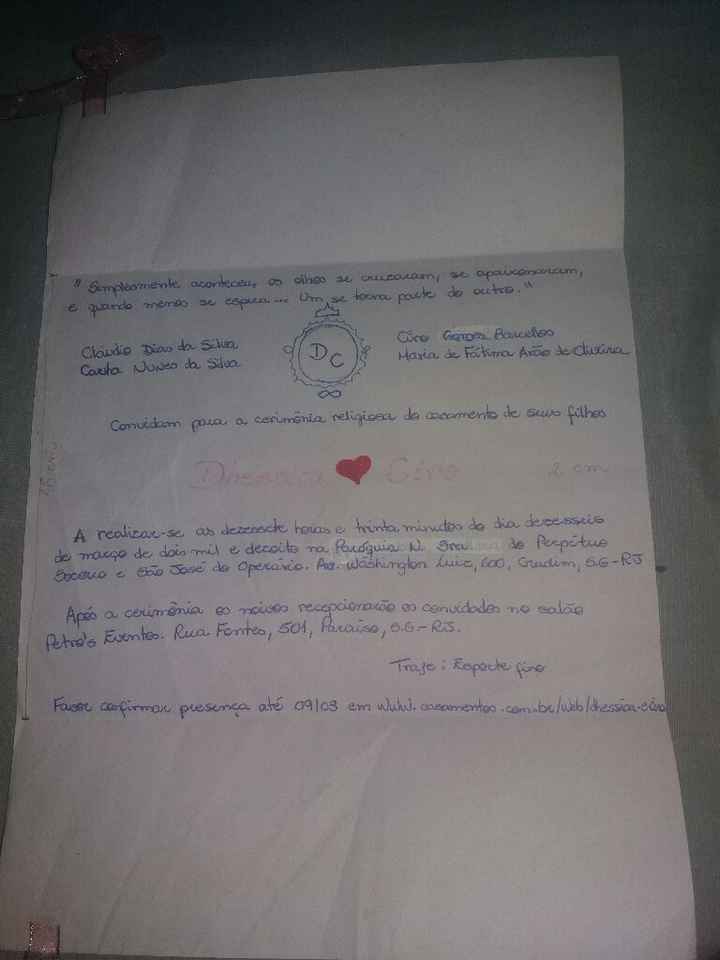 "Simplesmente aconteceu, os olhos se cruzaram, se apaixonaram,
e quando menos se espera... Um se torna parte do outro."
Claudio Dias da Silva
Carla Nunes da Silva
D C
Ciro Gomes Barcellos
Maria de Fátima Arão de Oliveira
Convidam para a cerimônia religiosa do casamento de seus filhos
Dhessica Ciro 2 cm
A realizar-se as dezessete horas e trinta minutos do dia dezesseis
de março de dois mil e dezoito na Paróquia N. do Perpétuo
Socorro e São José do Operário. Av. Washington Luiz, 600, Gradim, S.G-RJ
Após a cerimônia os noivos recepcionarão os convidados no salão
Petro's Eventos. Rua Fontes, 501, Paraiso, S.G-RJ.
Traje: Esporte fino
Favor confirmar presença até 09/03 em www.casamentos.com.br/web/dhessica-e-ciro